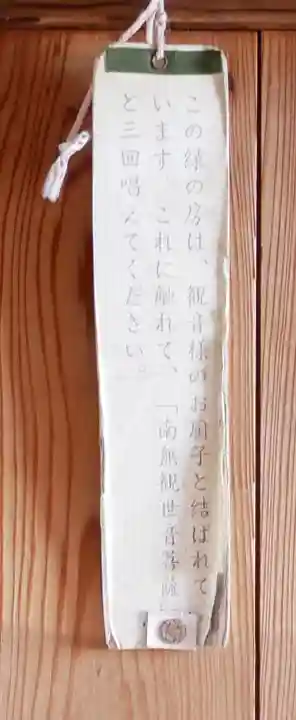 この縁の房は、観音様のお厨子と結ばれて
います これに触れて、「南無観世音菩薩」
と三回唱えてください。